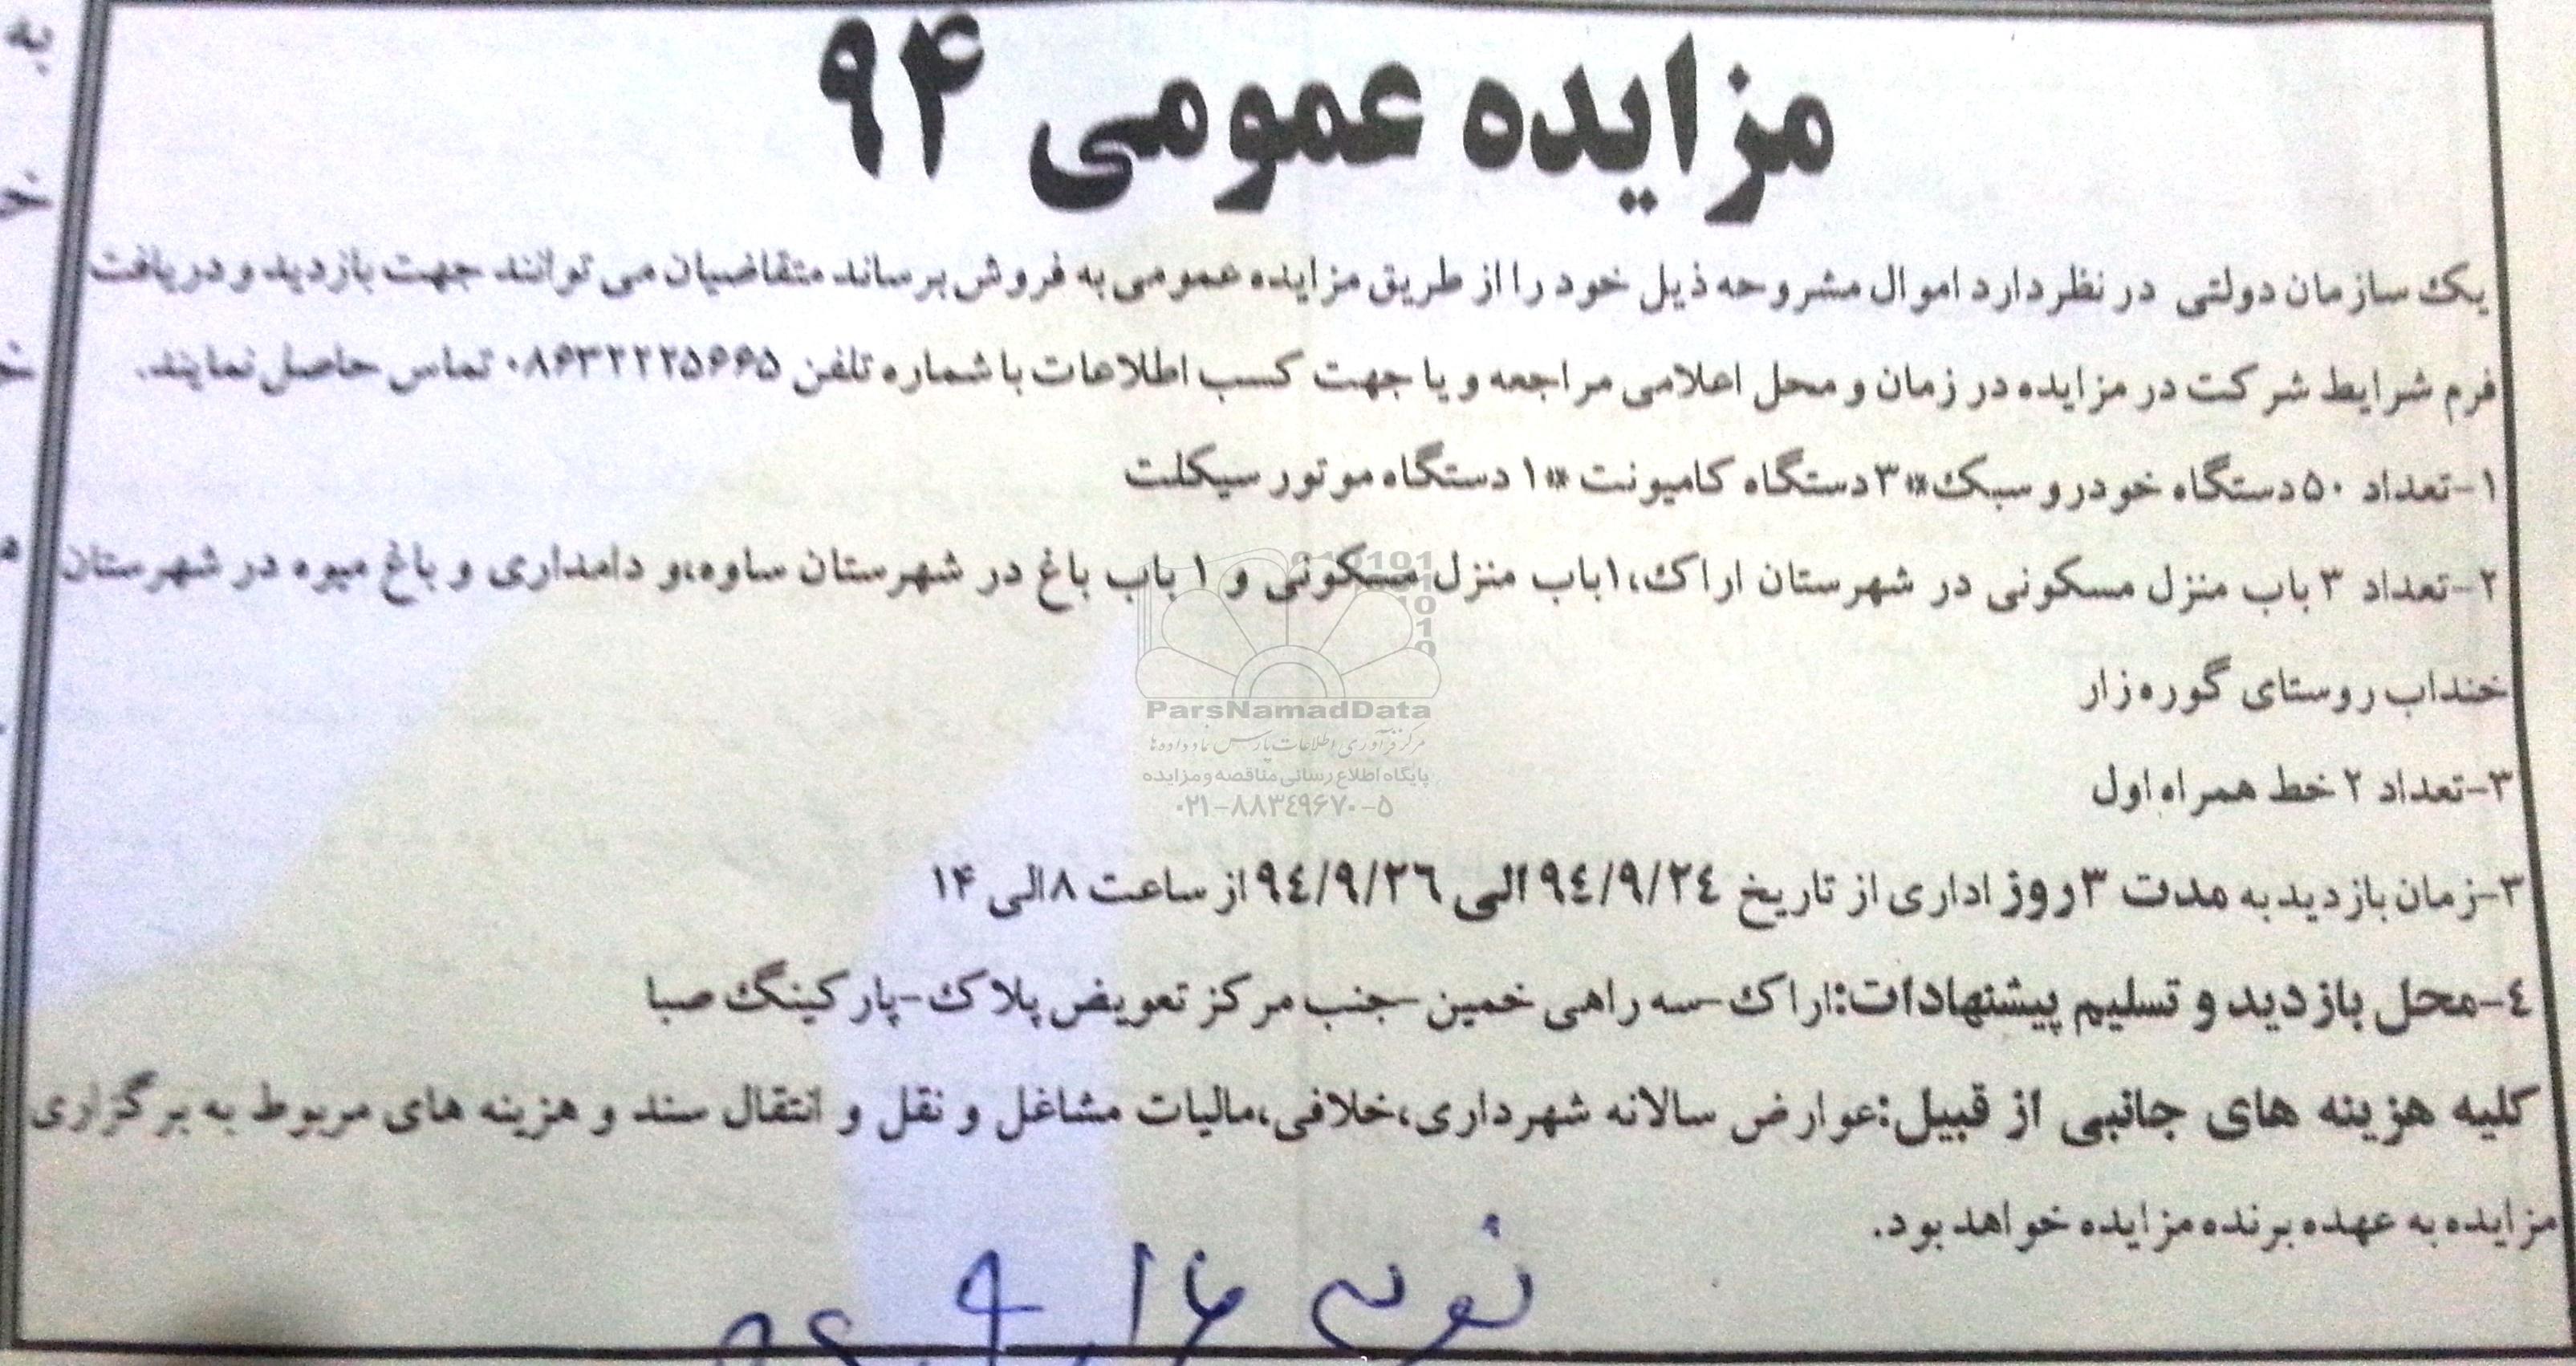 مزایده عمومی ۹۴
یک سازمان دولتی در نظر دارد اموال مشروحه ذیل خود را از طریق مزایده عمومی به فروش برساند متقاضیان می توانند جهت بازدید و دریافت
فرم شرایط شرکت در مزایده در زمان و محل اعلامی مراجعه و یا جهت کسب اطلاعات با شماره تلفن ۰۸۶۳۲۲۲۵۶۶۵ تماس حاصل نمایند.
۱-تعداد ۵۰ دستگاه خودرو سبک*۳ دستگاه کامیونت *۱ دستگاه موتور سیکلت
۲-تعداد ۳ باب منزل مسکونی در شهرستان اراک،۱باب منزل مسکونی و ۱ باب باغ در شهرستان ساوه،و دامداری و باغ میوه در شهرستان
خنداب روستای گوره زار
۳-تعداد ۲ خط همراه اول
۳-زمان بازدید به مدت ۳ روز اداری از تاریخ ۹٤/۹/۲٤ الی ۹٤/۹/۲٦ از ساعت ۸ الی ۱۴
٤-محل بازدید و تسلیم پیشنهادات:اراک-سه راهی خمین-جنب مرکز تعویض پلاک-پارکینگ صبا
کلیه هزینه های جانبی از قبیل:عوارض سالانه شهرداری،خلافی،مالیات مشاغل و نقل و انتقال سند و هزینه های مربوط به برگزاری
مزایده به عهده برنده مزایده خواهد بود.
ParsNamadData
مرکز فرآوری اطلاعات پارس نماد داده ها
پایگاه اطلاع رسانی مناقصه و مزایده
۰۲۱-۸۸۳۴۹۶۷۰-۵